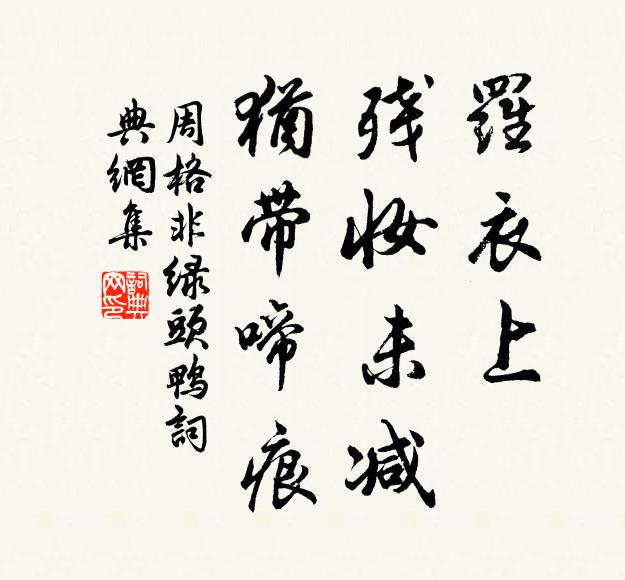 羅衣上
残妝未减
猶帶啼痕
周格非緑頭鴨詞
典網集
詞典網印